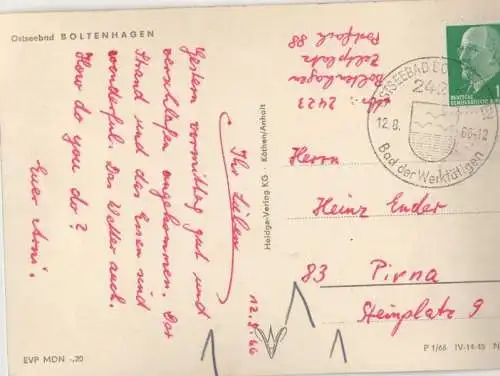 Ostseebad BOLTENHAGEN
12.8.66
Ihr Lieben
Gestern vormittag gut und
verschlafen angekommen. Der
Strand und das Essen sind
wonderful. Das Wetter auch.
How do you do?
Euer Arni.
EVP MDN -,20
Heldge-Verlag KG Köthen/Anhalt
2423
Boltenhagen
Zeltplatz
Postfach 88
DEUTSCHE
12.8. 66-12
Bad der Werktätigen
Herrn
Heinz Ender
83 Pirna
Steinplatz 9
P 1/66 IV-14-45